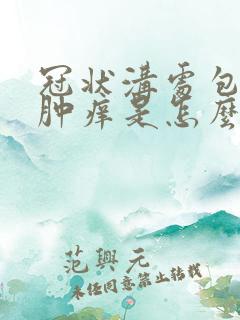 冠状溝處包
肿痒是怎麽
范興元
未任同意禁止转载